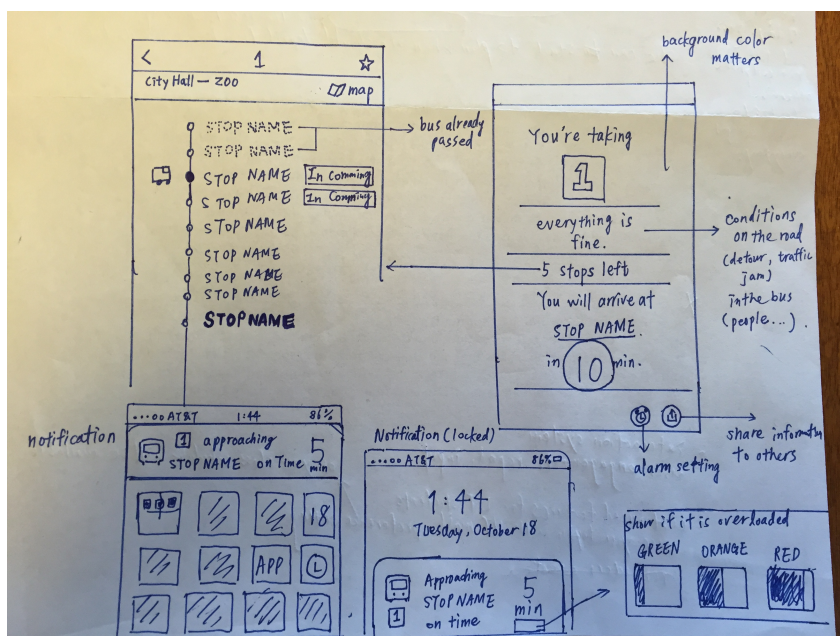 1
City Hall — ZOO
map
STOP NAME
STOP NAME
STOP NAME In Comming
STOP NAME In Comming
STOP NAME
STOP NAME
STOP NAME
STOP NAME
STOP NAME
bus already
passed
background color
matters
You're taking
1
everything is
fine.
5 stops left
You will arrive at
STOP NAME.
in 10 min.
conditions
on the road
(detour, traffic
jam)
in the bus
(people...).
share information
to others
alarm setting
notification
AT&T 1:44 86%
1 approaching 5
STOP NAME on Time min
18
APP L
Notification (locked)
AT&T 86%
1:44
Tuesday, October 18
Approaching 5
STOP NAME min
1 on time
show if it is overloaded
GREEN ORANGE RED